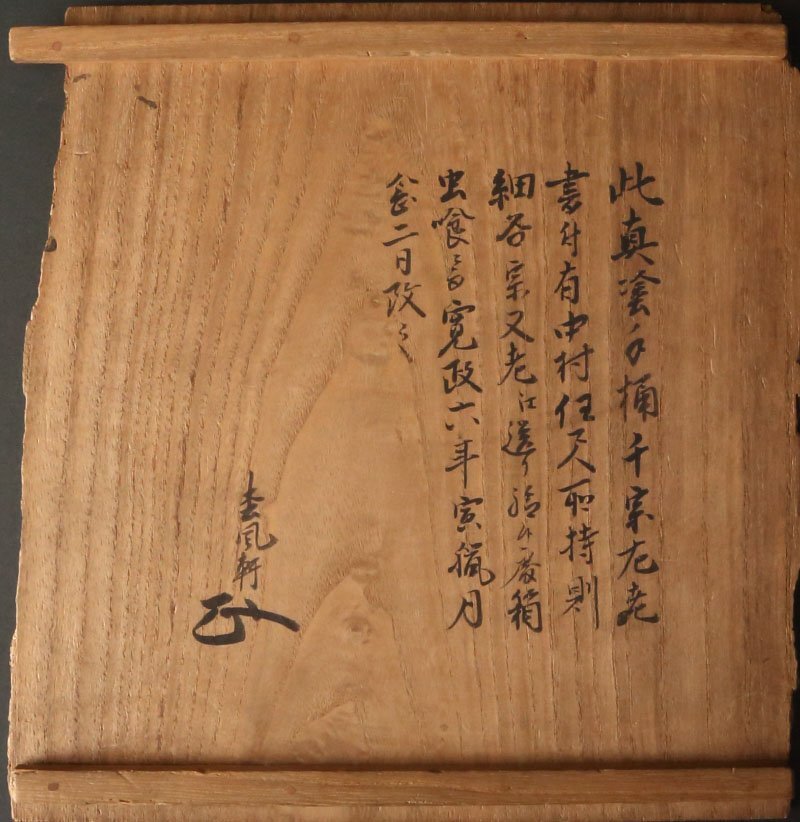 此真塗手桶千宗左老
書付有中村任人所持則
細谷宗又老江送り箱
虫喰ニ而寛政六年寅臘月
念二日改之
松風軒